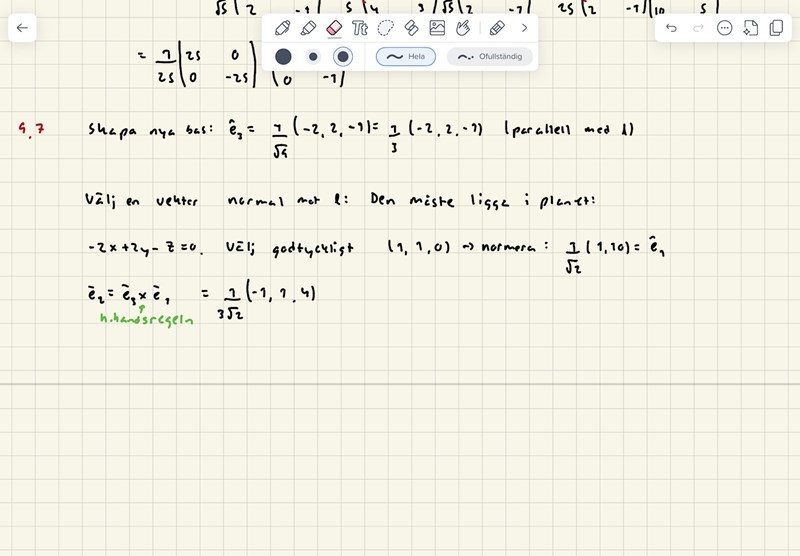 √5 | 2 -1 | 5 | 4 3 / √5 | 2 -1 | 25 | 2 -1 | | 10 5 |
Hela Ofullständig
= 1/25 | 25 0 | | 0 -25 | ( 0 -1 )
9.7 Skapa nya bas: ê₃ = 1/√9 (-2, 2, -1) = 1/3 (-2, 2, -1) (parallell med l)
Välj en vektor normal mot l: Den måste ligga i planet:
-2x+2y-z=0. Välj godtyckligt (1, 1, 0) → normera: 1/√2 (1, 1 0) = ê₁
ē₂ = ē₃ × ē₁ = 1/3√2 (-1, 1, 4)
h.handsregeln